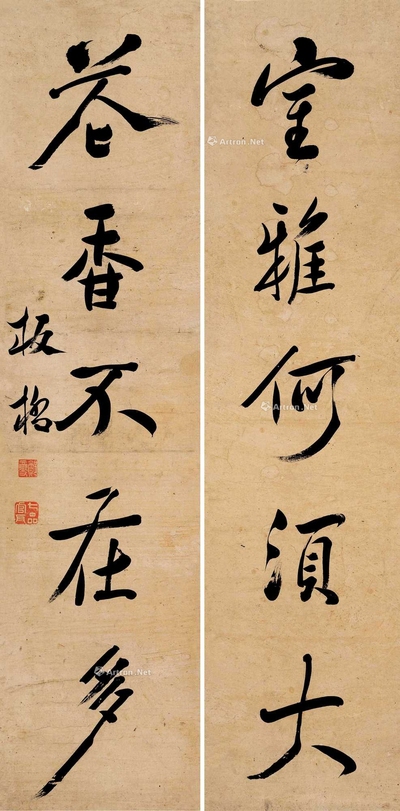 室雅何须大
花香不在多
板橋
七品官耳
Artron.Net
Artron.Net
Artron.Net